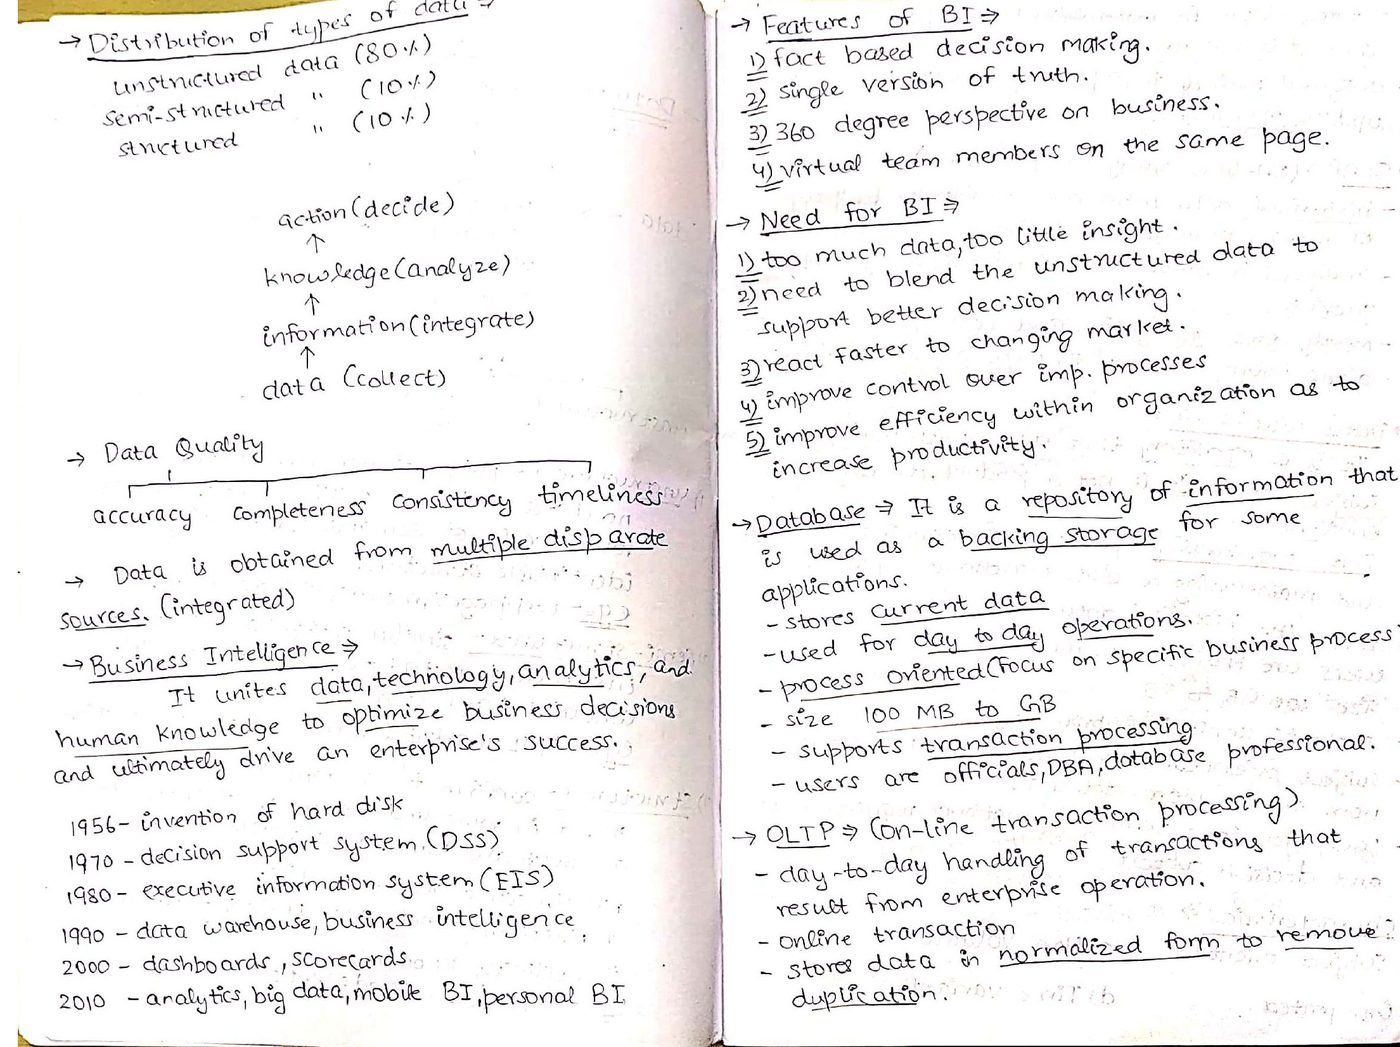 → Distribution of types of data ⇒
unstructured data (80%)
semi-structured " (10%)
structured " (10%)
action (decide)
↑
knowledge (analyze)
↑
information (integrate)
↑
data (collect)
→ Data Quality
accuracy completeness consistency timeliness
→ Data is obtained from multiple disparate
sources. (integrated)
→ Business Intelligence ⇒
It unites data, technology, analytics, and
human knowledge to optimize business decisions
and ultimately drive an enterprise's success.
1956 - invention of hard disk
1970 - decision support system (DSS)
1980 - executive information system (EIS)
1990 - data warehouse, business intelligence
2000 - dashboards, scorecards
2010 - analytics, big data, mobile BI, personal BI
→ Features of BI ⇒
1) fact based decision making.
2) single version of truth.
3) 360 degree perspective on business.
4) virtual team members on the same page.
→ Need for BI ⇒
1) too much data, too little insight.
2) need to blend the unstructured data to
support better decision making.
3) react faster to changing market.
4) improve control over imp. processes
5) improve efficiency within organization as to
increase productivity.
→ Database ⇒ It is a repository of information that
is used as a backing storage for some
applications.
- stores current data
- used for day to day operations.
- process oriented (focus on specific business process
- size 100 MB to GB
- supports transaction processing
- users are officials, DBA, database professional.
→ OLTP ⇒ (on-line transaction processing)
- day-to-day handling of transactions that
result from enterprise operation.
- online transaction
- stores data in normalized form to remove
duplication.